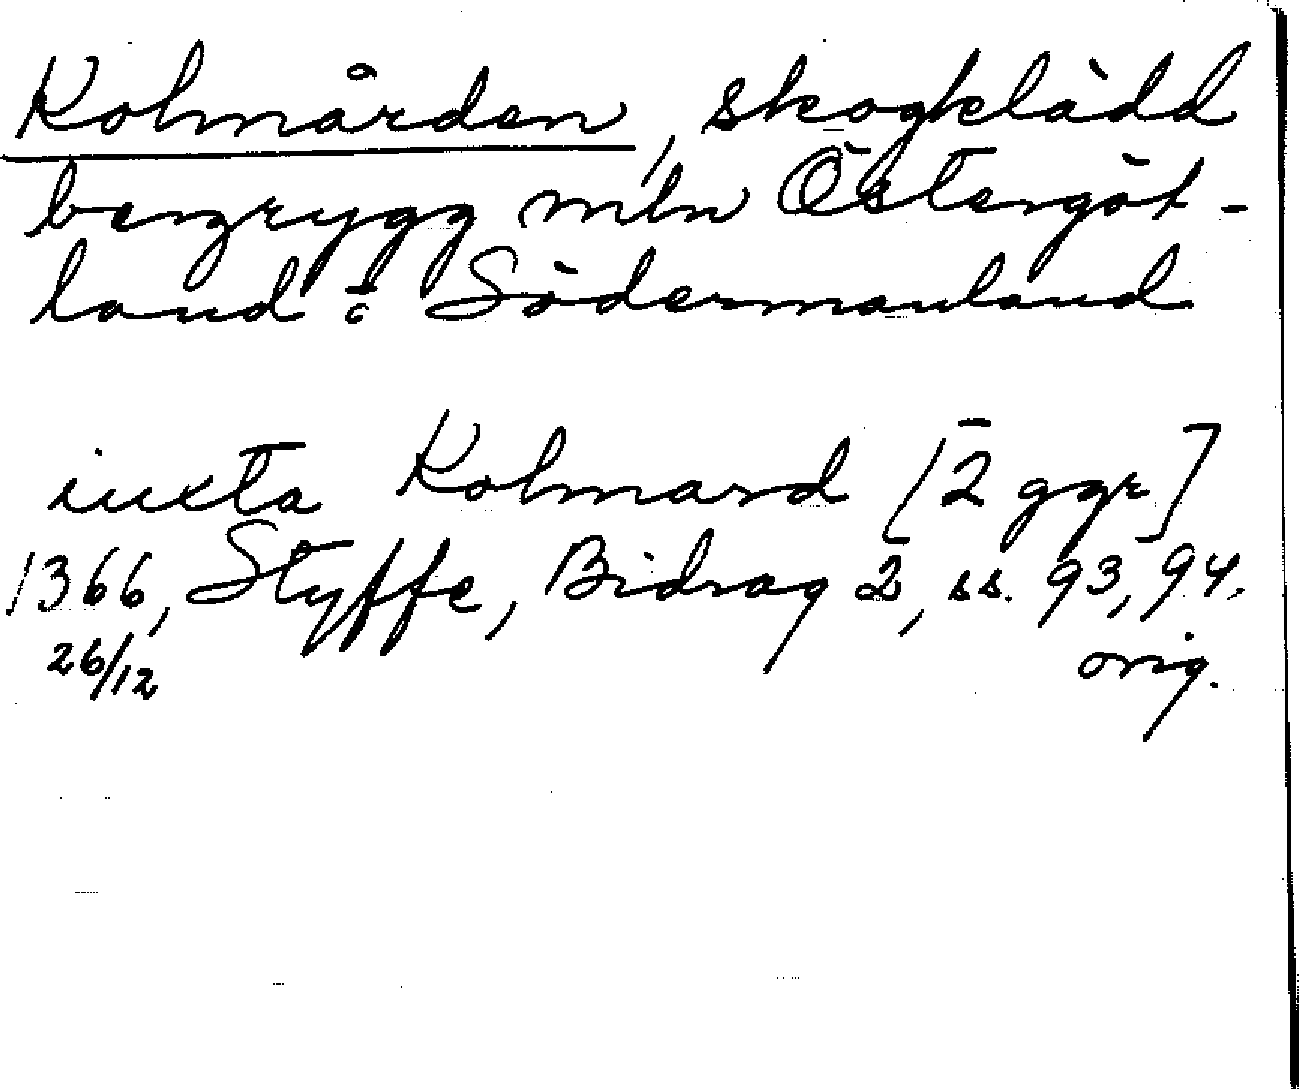 Kolmården, skogklädd
bergrygg mln Östergöt-
land o Södermanland
iuxta Kolmard [2 ggr]
1366, Styffe, Bidrag 2, ss. 93, 94.
26/12 orig.